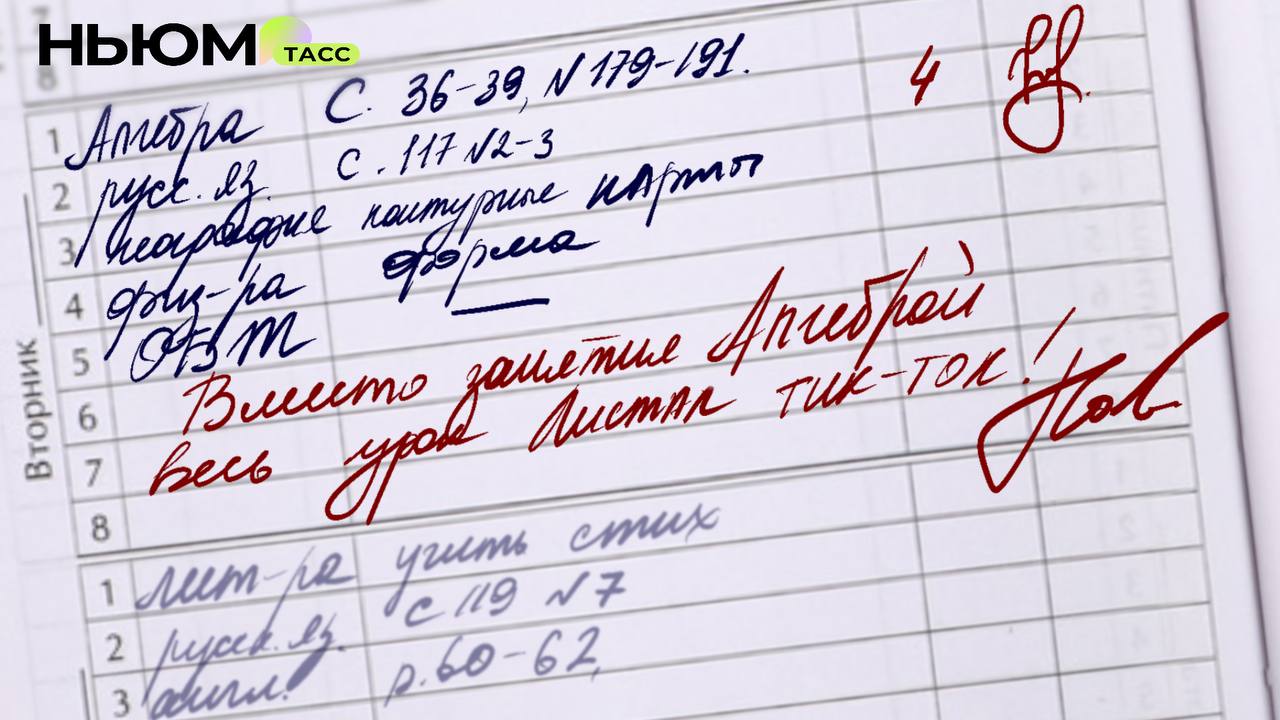 НЬЮМ ТАСС
8
1 Алгебра С. 36-39, N179-191. 4
2 русс. яз. С. 117 N2-3
3 география контурные карты
4 физ-ра форма
5 ОБЖ —
6 Вместо занятия Алгеброй
7 весь урок Листал тик-ток!
8
Вторник
1 лит-ра учить стих
2 русск. яз. с 119 N7
3 англ. р.60-62,